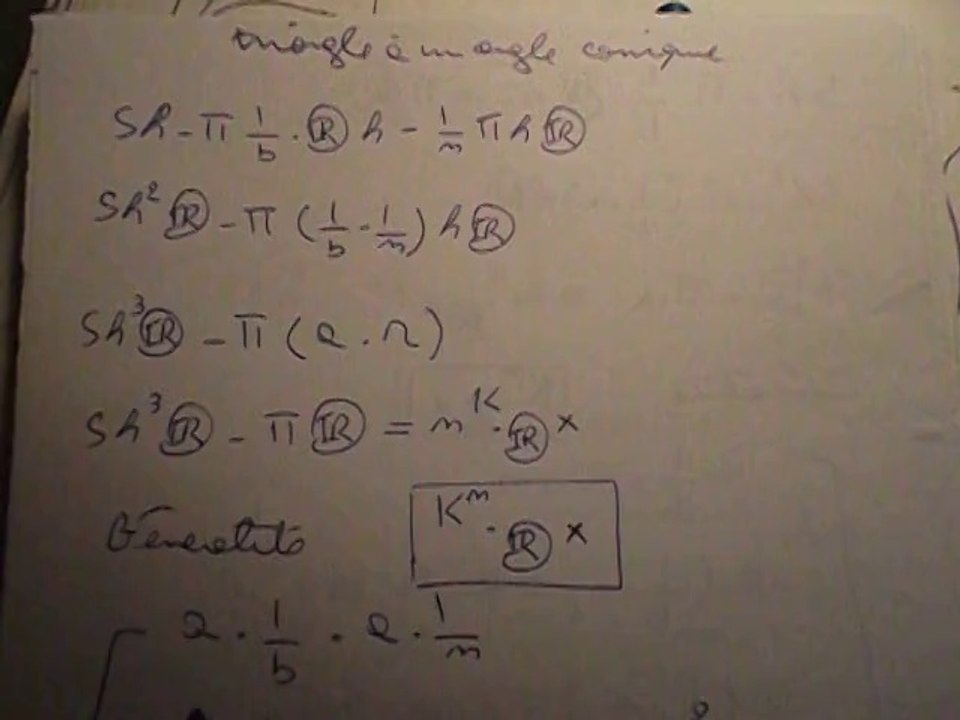 triangle à un angle conique
Sh - π 1/b . Ⓡ h - 1/n π h Ⓡ
Sh² Ⓡ - π (1/b - 1/n) h Ⓡ
Sh³ Ⓡ - π ( . )
Sh³ Ⓡ - π Ⓡ = n^K . Ⓡ x
Généralité
K^n . Ⓡ x
. 1/b . . 1/n